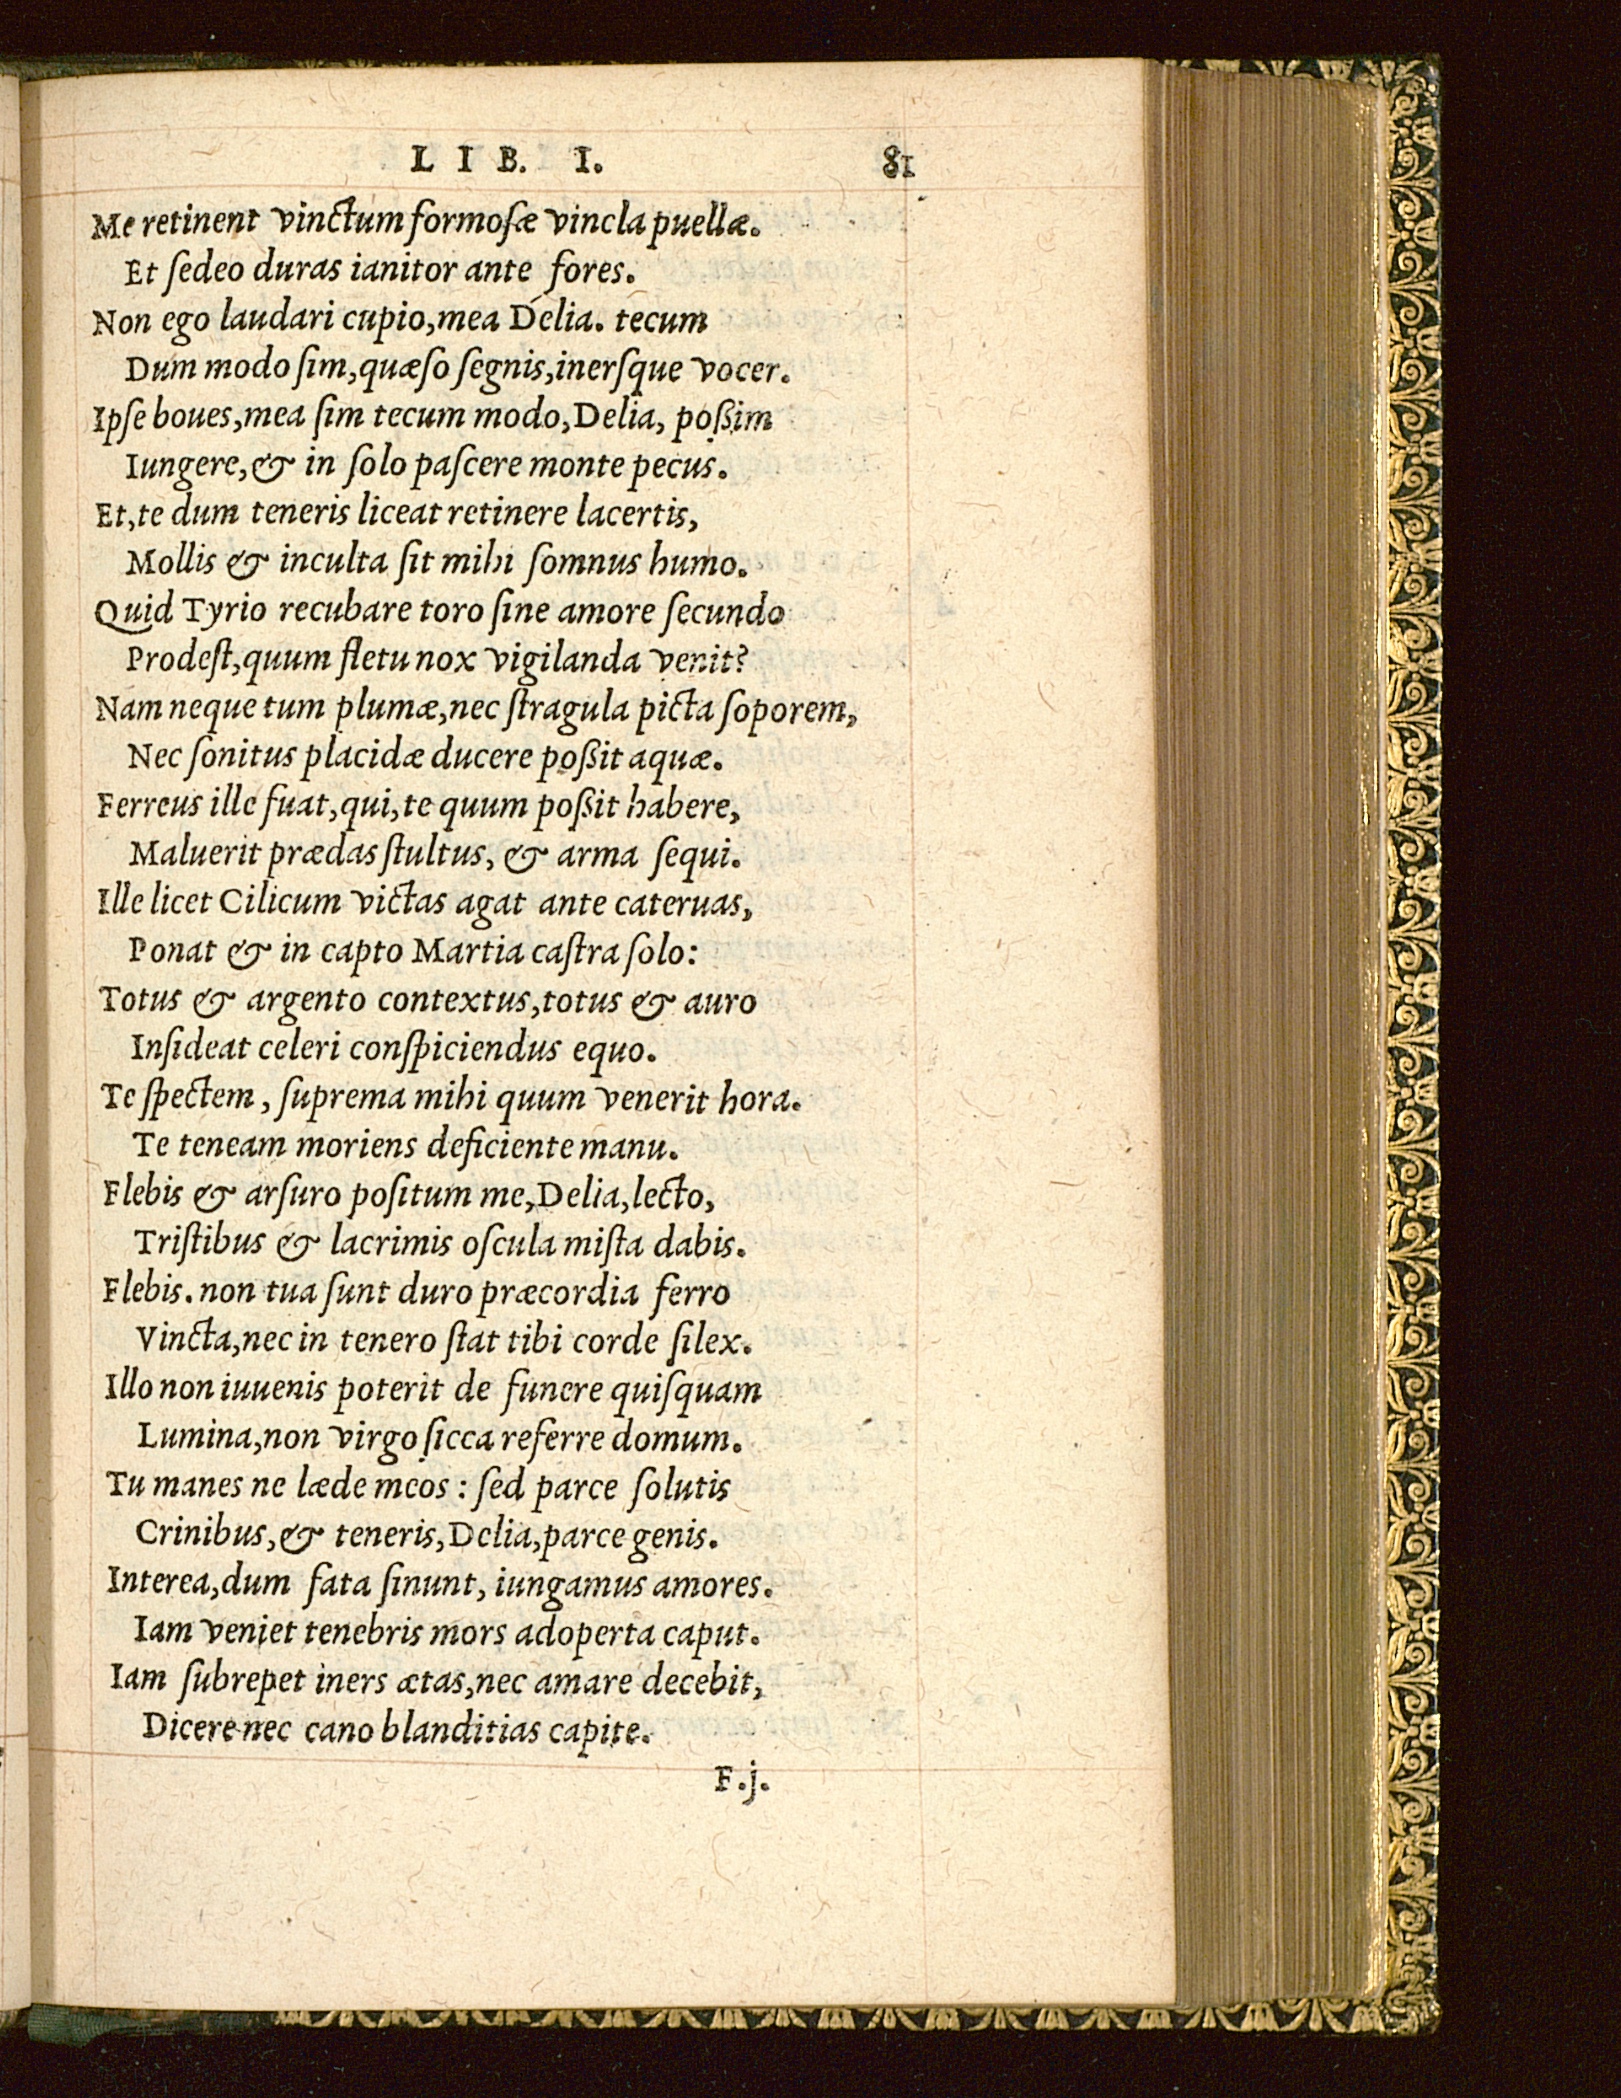 LIB. I. 81
Me retinent vinctum formoſæ vincla puellæ.
Et ſedeo duras ianitor ante fores.
Non ego laudari cupio, mea Délia. tecum
Dum modo ſim, quæſo ſegnis, inerſque vocer.
Ipſe boues, mea ſim tecum modo, Delia, poßim
Iungere, & in ſolo paſcere monte pecus.
Et, te dum teneris liceat retinere lacertis,
Mollis & inculta ſit mihi ſomnus humo.
Quid Tyrio recubare toro ſine amore ſecundo
Prodeſt, quum fletu nox vigilanda venit?
Nam neque tum plumæ, nec ſtragula picta ſoporem,
Nec ſonitus placidæ ducere poßit aquæ.
Ferreus ille fuat, qui, te quum poßit habere,
Maluerit prædas ſtultus, & arma ſequi.
Ille licet Cilicum victas agat ante cateruas,
Ponat & in capto Martia caſtra ſolo:
Totus & argento contextus, totus & auro
Inſideat celeri conſpiciendus equo.
Te ſpectem, ſuprema mihi quum venerit hora.
Te teneam moriens deficiente manu.
Flebis & arſuro poſitum me, Delia, lecto,
Triſtibus & lacrimis oſcula miſta dabis.
Flebis. non tua ſunt duro præcordia ferro
Vincta, nec in tenero ſtat tibi corde ſilex.
Illo non iuuenis poterit de funere quiſquam
Lumina, non virgo ſicca referre domum.
Tu manes ne læde meos: ſed parce ſolutis
Crinibus, & teneris, Delia, parce genis.
Interea, dum fata ſinunt, iungamus amores.
Iam veniet tenebris mors adoperta caput.
Iam ſubrepet iners ætas, nec amare decebit,
Dicere nec cano blanditias capite.
F.j.